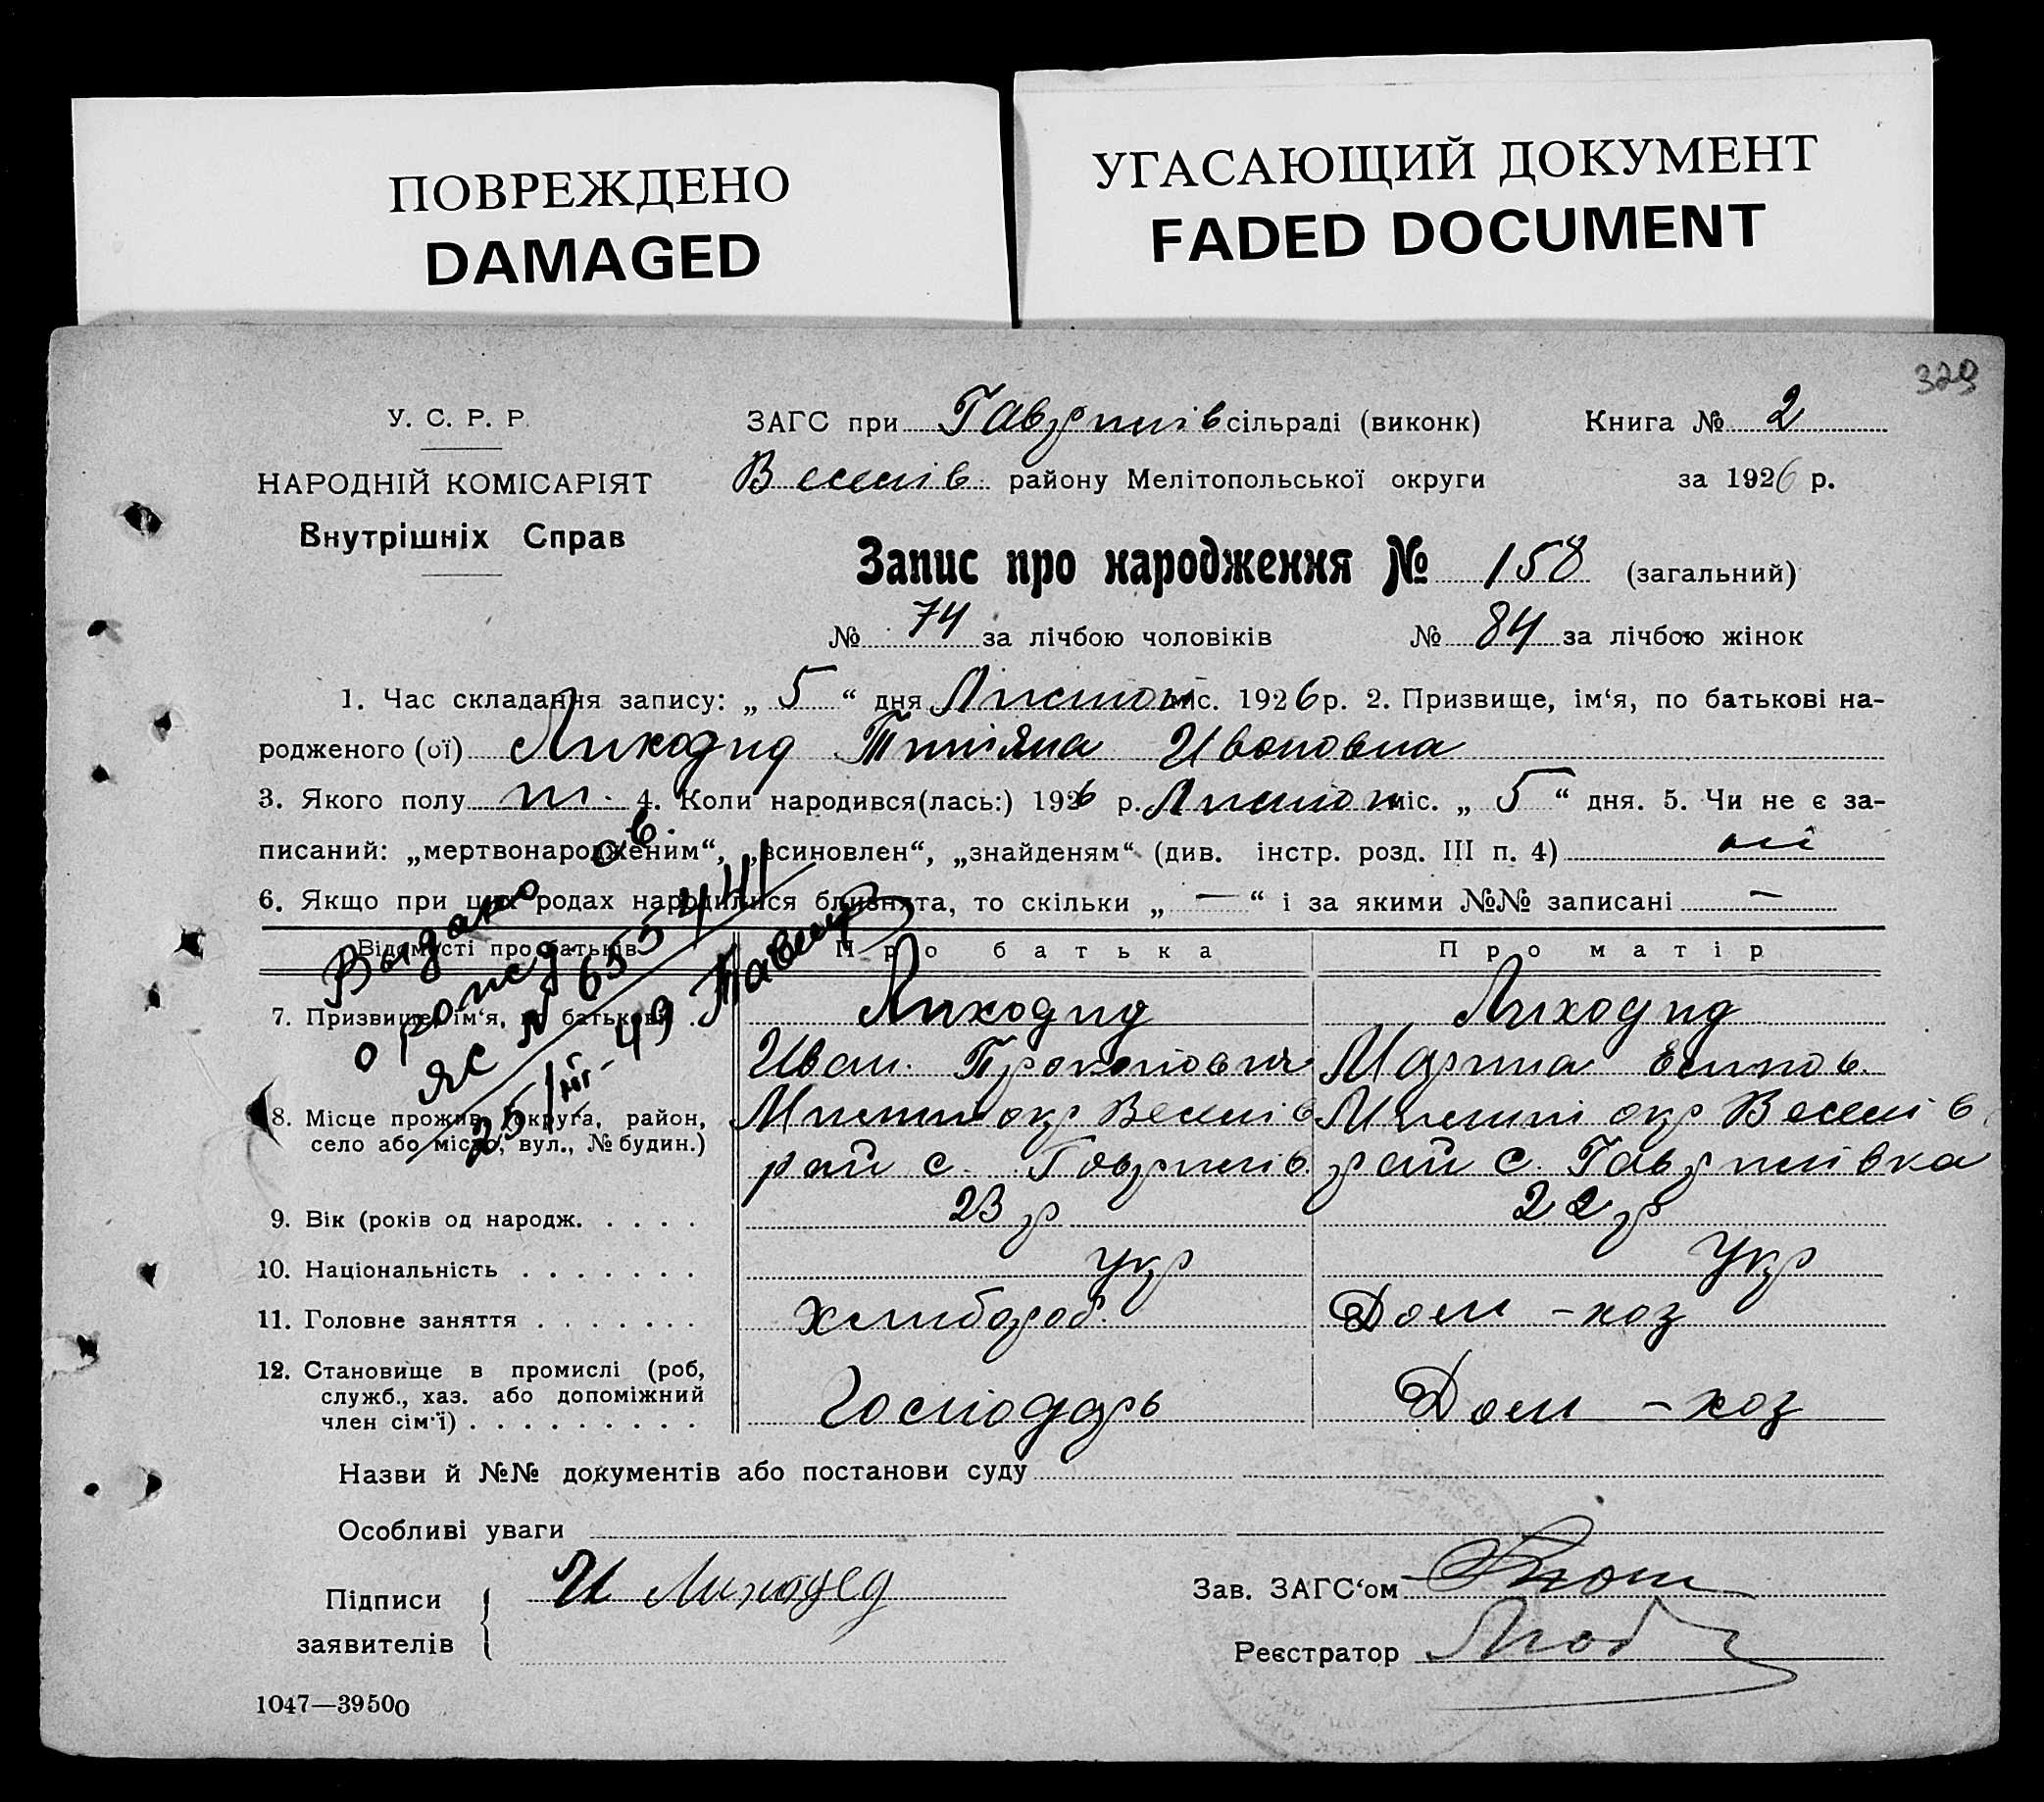 ПОВРЕЖДЕНО
DAMAGED
УГАСАЮЩИЙ ДОКУМЕНТ
FADED DOCUMENT
329
У. С. Р. Р.
НАРОДНІЙ КОМІСАРІЯТ
Внутрішніх Справ
ЗАГС при Гаврилів сільраді (виконк)
Книга № 2
Веселів району Мелітопольської округи
за 1926 р.
Запис про народження № 158 (загальний)
№ 74 за лічбою чоловіків № 84 за лічбою жінок
1. Час складання запису: „ 5 “ дня Листоп міс. 1926 р. 2. Призвище, ім‘я, по батькові на-
родженого (ої) Лиходид Тетіяна Ивановна
3. Якого полу ж. 4. Коли народився(лась:) 1926 р. Листоп міс. „ 5 “ дня. 5. Чи не є за-
писаний: „мертвонародженим“, „всиновлен“, „знайденям“ (див. інстр. розд. III п. 4) ні
6. Якщо при цих родах народилися близнята, то скільки „ — “ і за якими №№ записані —
Выдано св.
о рожд
ЯС № 655441
25/III-49
Відомості про батьків
Про батька
Про матір
7. Призвище, ім‘я, по батькові .
Лиходид
Иван Прокопович
Лиходид
Марина Есипов.
8. Місце прожив. (округа, район,
село або місто, вул., № будин.)
Мелит окр Веселів
рай с. Гаврилів
Мелит окр Веселів
рай с. Гаврилівка
9. Вік (років од народж. . . . .
23 р
22 р
10. Національність . . . . . . .
Укр
Укр
11. Головне заняття . . . . . . .
Хлибороб.
Дом - хоз
12. Становище в промислі (роб,
служб., хаз. або допоміжний
член сім‘ї) . . . . . . . . .
Господарь
Дом - хоз
Назви й №№ документів або постанови суду
Особливі уваги
Підписи
заявителів
И Лиходед
Зав. ЗАГС‘ом
Реєстратор
1047—39500